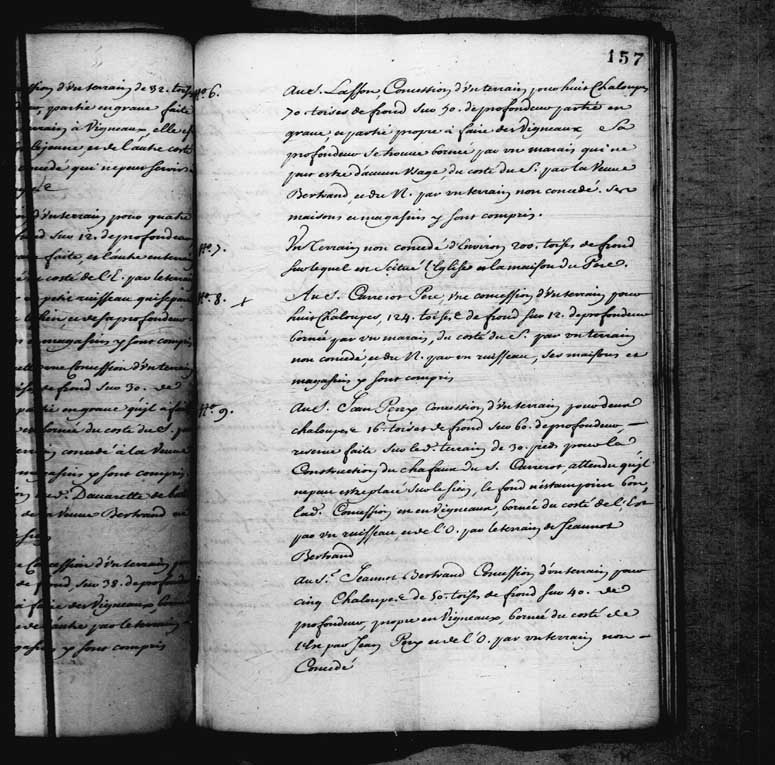 157
ssion d'un terrain de 32. toises
partie en grave faite
terrain à Vigneaux, elle
et de l'autre costé
concedé qui ne peut servir
d'un terrain pour quatre
frond sur 12. de profondeur
faite, et l'autre
du costé de l'E. par le terrain
petit ruisseau qui separe
et de sa profondeur
et magasins y sont compris
une Concession d'un terrain
de frond sur 30. de
partie en grave qu'il a fait
bornée du costé du S.
concedé a la Veuve
magasins y sont compris
Dacarrette
de la Veuve Bertrand
Concession d'un terrain
de frond, sur 38. de profondeur
à faire des Vigneaux, borné
de l'autre par le terrain
magasins y sont compris
No. 6.
Au S. Lasson Concession d'un terrain pour huit Chaloupes
70. toises de frond sur 50. de profondeur partie en
grave, et partie propre à faire des Vigneaux Sa
profondeur se trouve bornée par un marais qui ne
peut estre d'aucun usage, du costé du S. par la Veuve
Bertrand et du N. par un terrain non concedé. Ses
maisons et magasins y sont compris.
No. 7.
Un Terrain non concedé d'Environ 200. toises de frond
sur lequel est Scitué l'Eglise et la maison du Pere.
No. 8. +
Au S. Carrerot Pere, une concession d'un terrain pour
huit Chaloupes, 124. toises de frond sur 12. de profondeur
bornée par un marais, du costé du S. par un terrain
non concedé, et du N. par un ruisseau, ses maisons et
magasins y sont compris
No. 9.
Au S. Jean Perx concession d'un terrain pour deux
chaloupes 16. toises de frond sur 60. de profondeur, —
reserve faite sur led. terrain de 30. pieds pour la
Construction du chafaux du S. Carrerot, attendu qu'il
ne peut estre placé sur le sien, le fond n'estant point bon,
lad. Concession est en Vigneaux, bornée du costé de l'Est
par un ruisseau, et de l'O. par le terrain de Jeannot
Bertrand
Au S. Jeannot Bertrand Concession d'un terrain pour
cinq Chaloupes de 50. toises de frond sur 40. de
profondeur, propre en Vigneaux, bornée du costé de
l'Est par Jean Perx et de l'O. par un terrain non —
Concedé